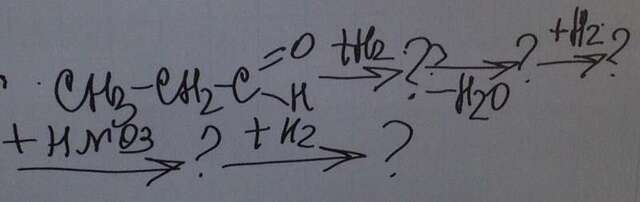 CH3-CH2-C=O-H +H2→ ? -H2O→ ? +H2→ ?
+HNO3→ ? +H2→ ?